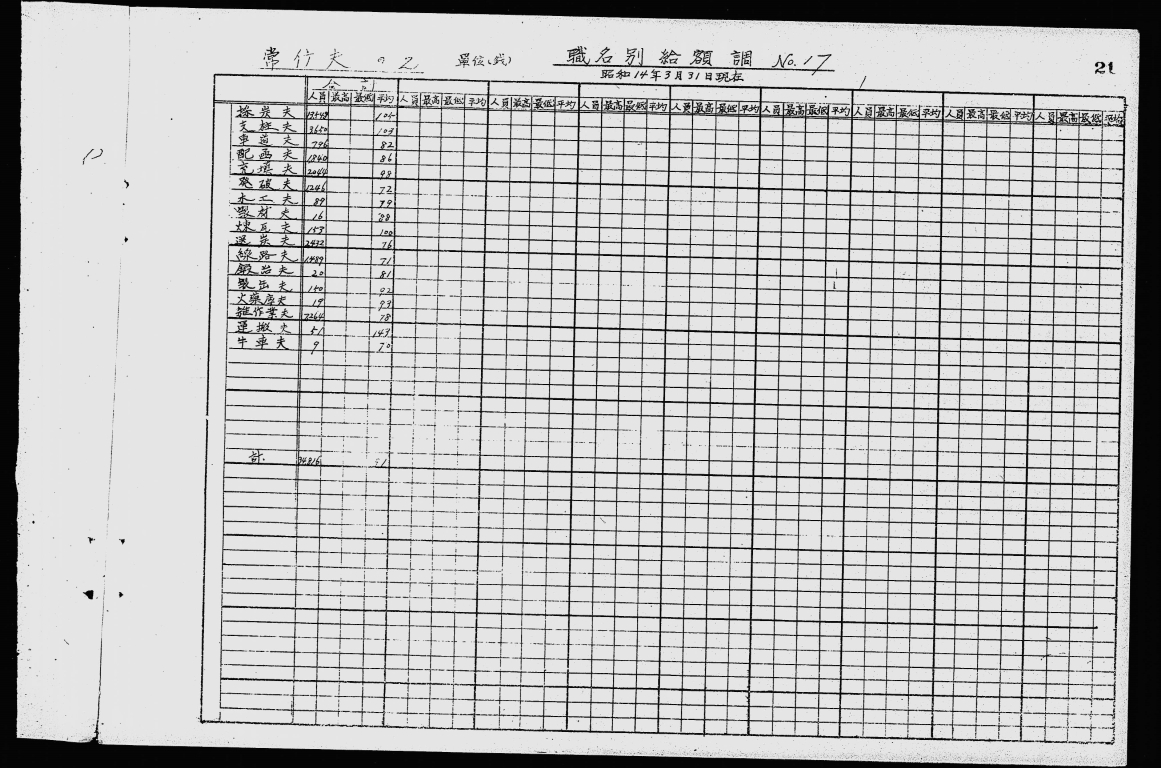 常付夫の2 單位(錢) 職名別給額調 No.17 21
昭和14年3月31日現在
合計
人員 最高 最低 平均 人員 最高 最低 平均 人員 最高 最低 平均 人員 最高 最低 平均 人員 最高 最低 平均 人員 最高 最低 平均 人員 最高 最低 平均 人員 最高 最低 平均 人員 最高 最低 平均
採炭夫 105
支柱夫 3650 103
車道夫 796 82
配函夫 1840 86
充填夫 2044 98
発破夫 1246 72
木工夫 89 99
製材夫 16 88
煉瓦夫 153 100
選炭夫 2432 76
線路夫 1489 71
鍛冶夫 20 81
製缶夫 150 92
火薬庫夫 19 93
雑作業夫 7264 78
運搬夫 51 143
牛車夫 9 70
計 34816 91